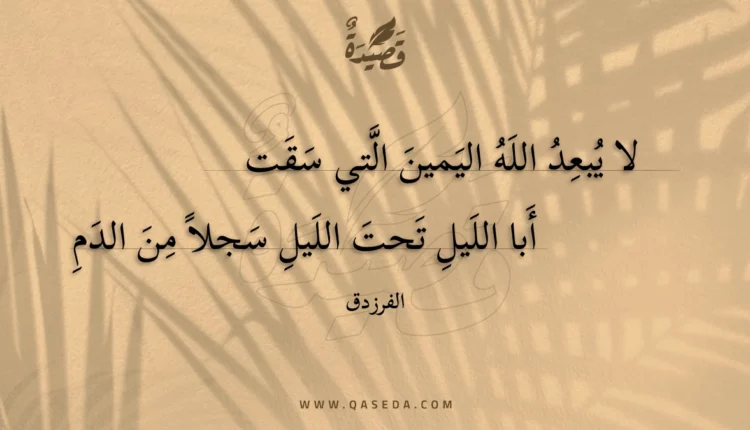 قَصِيْدَةٌ
لا يُبعِدُ اللَهُ اليَمينَ الَّتي سَقَت
أَبا اللَيلِ تَحتَ اللَيلِ سَجلاً مِنَ الدَمِ
الفرزدق
WWW.QASEDA.COM